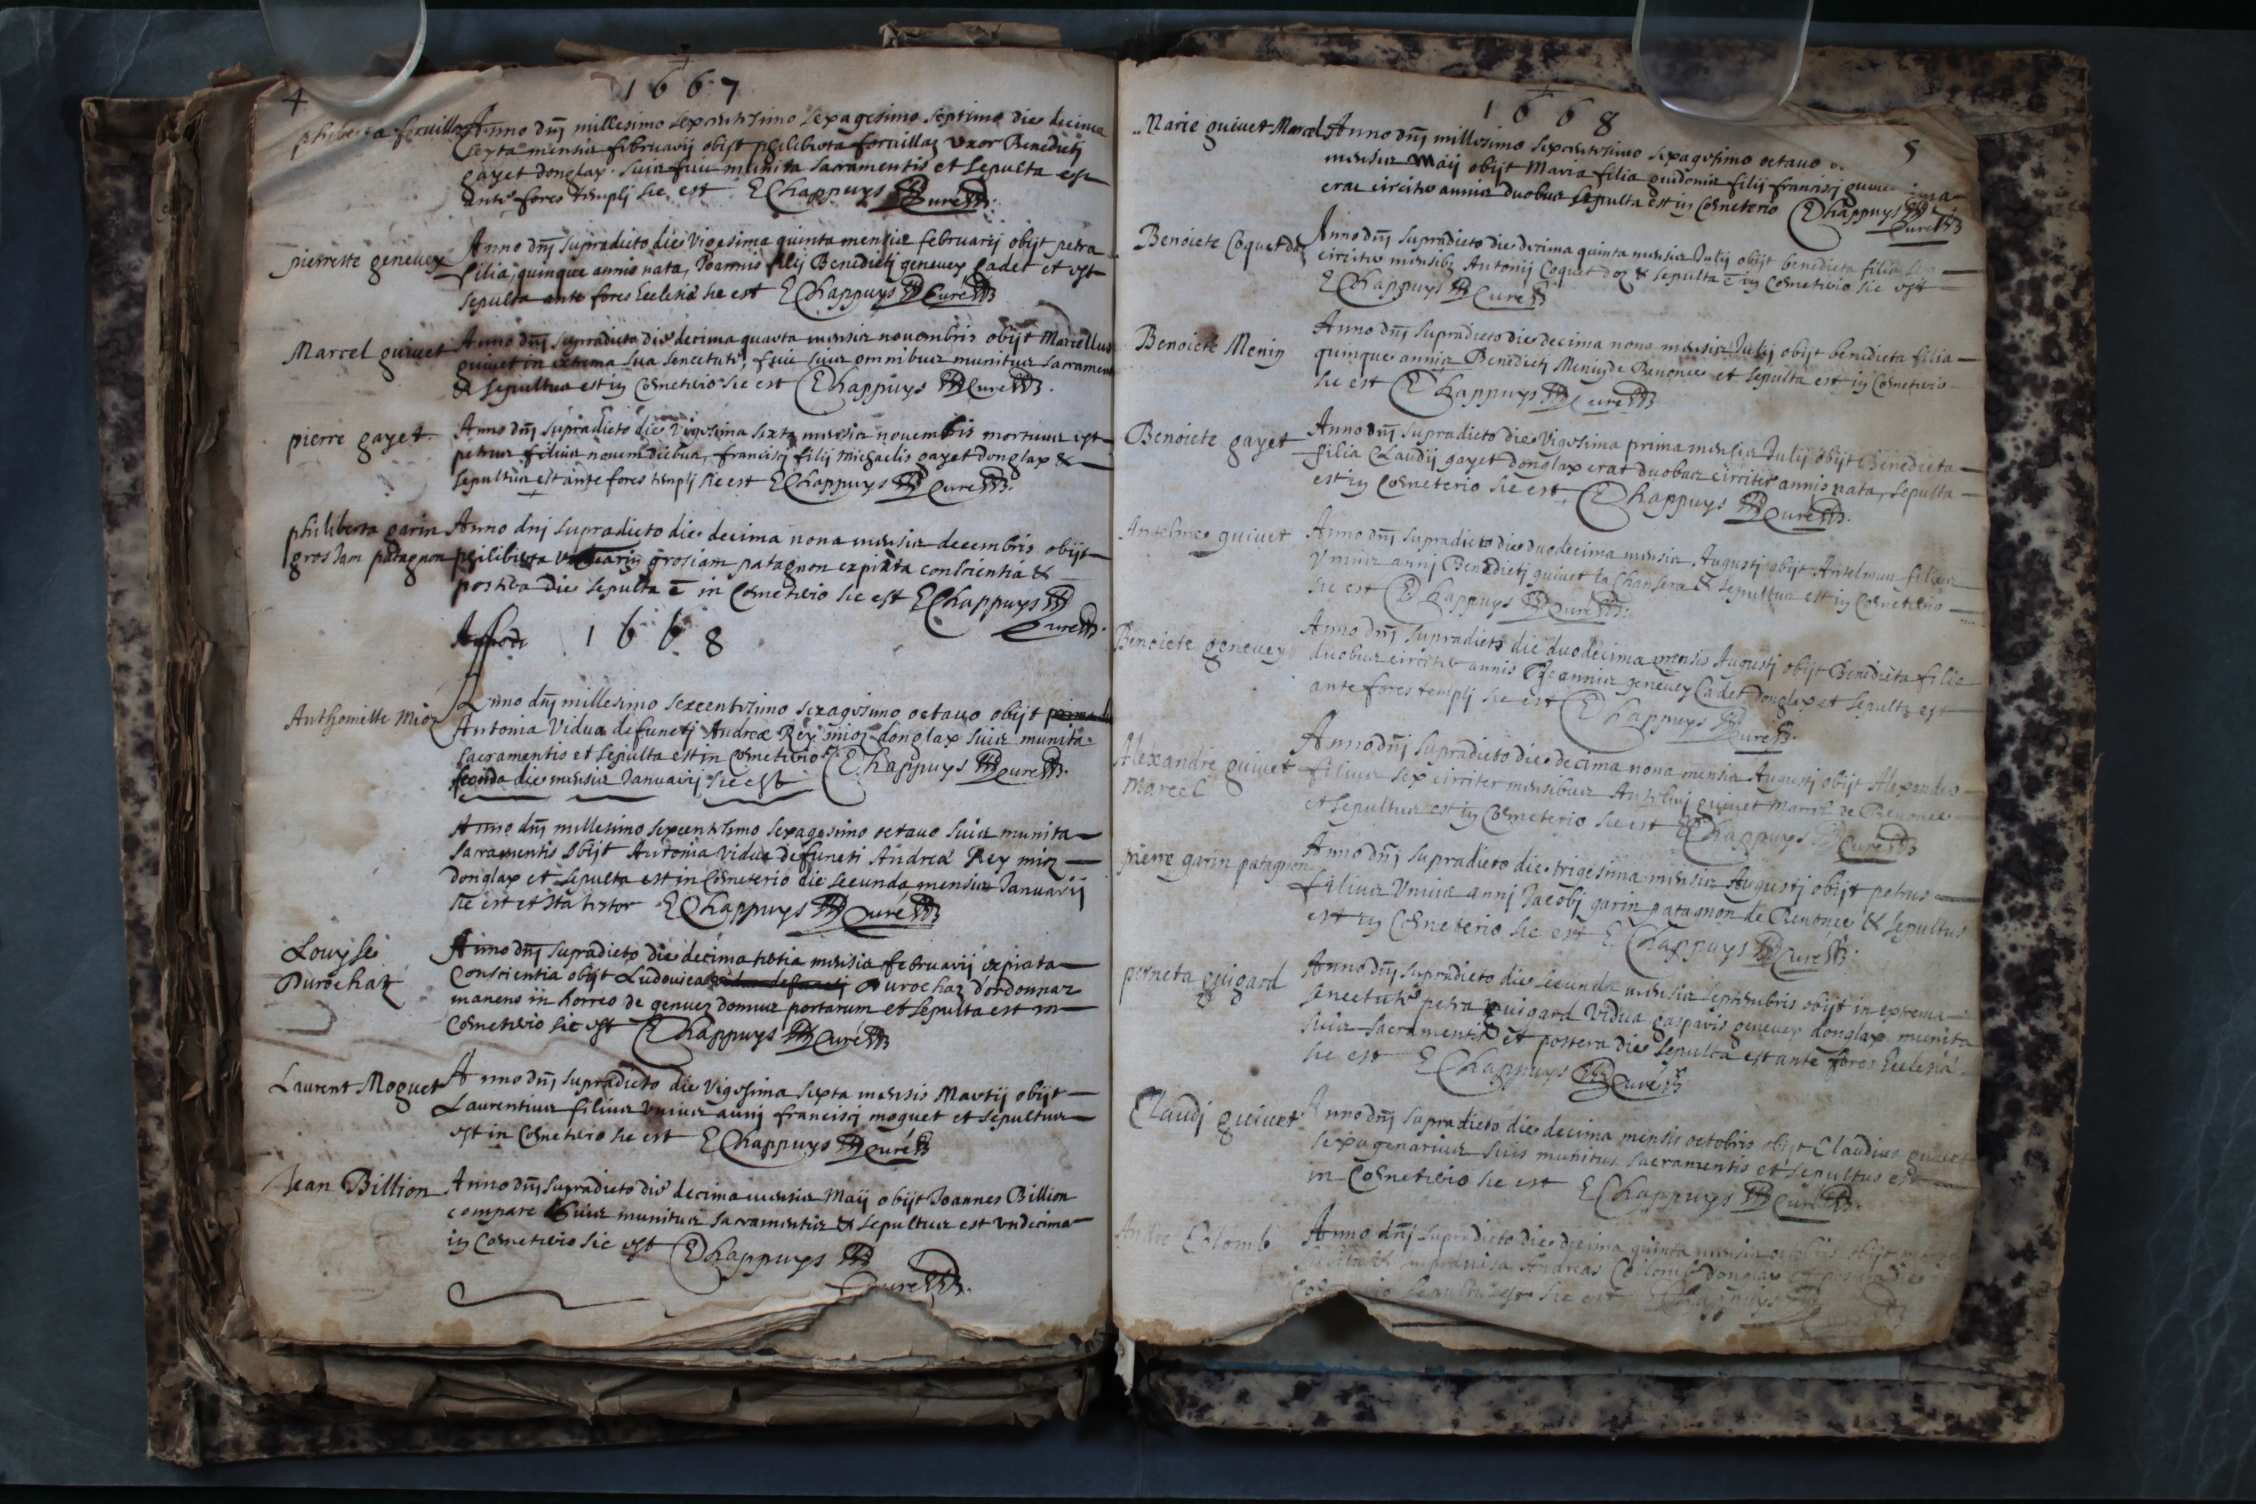 4
1667
philiberta feruillaz Anno dnj millesimo sexcentesimo sexagesimo septimo die decima
sexta mensis februarij obijt philiberta feruillaz Vxor Benedictj
gayet donglax suis fuit munita sacramentis et sepulta est
ante fores templj sic est E Chappuys Curé
pierrette geneuey Anno dnj supradicto die Vigesima quinta mensis februarij obijt petra
filia, quinque annis nata, Joannis filij Benedictj geneuey Cadet et est
sepulta ante fores Ecclesiæ sic est E Chappuys Curé
Marcel guiuet Anno dnj supradicto die decima quarta mensis nouembris obijt Marcellus
guiuet in extrema sua senectute, fuit suis omnibus munitus sacrament
& sepultus est in Cœmeterio sic est E Chappuys Curé
pierre gayet Anno dnj supradicto die Vigesima sexta mensis nouembris mortuus est
petrus filius nouem diebus, franciscj filij michaelis gayet donglax &
sepultus est ante fores templj sic est E Chappuys Curé
philiberta garin Anno dnj supradicto die decima nona mensis decembris obijt
grosJan patagnon philiberta garin grosian patagnon expiata conscientia &
postera die sepulta ē in Cœmeterio sic est E Chappuys
Curé
1668
Anthoinette mioz Anno dnj millesimo sexcentesimo sexagesimo octauo obijt
Antonia Vidua defunctj Andreæ Rey mioz donglax suis munita
sacramentis et sepulta est in cœmeterio E Chappuys Curé
secunda die mensis Januarij sic est
Anno dnj millesimo sexcentesimo sexagesimo octauo suis munita
sacramentis obijt Antonia vidua defuncti Andreæ Rey mioz
donglax et sepulta est in Cœmeterio die secunda mensis Januarij
sic est et Ita testor E Chappuys Curé
Louyse Anno dnj supradicto die decima tertia mensis februarij expiata
Durochat Conscientia obijt Ludouica vidua defunctj Durochaz dordonnaz
manens in horreo de genuez domus portarum et sepulta est in
Cœmeterio sic est E Chappuys Curé
Laurent Moguet Anno dnj supradicto die Vigesima sexta mensis Martij obijt
Laurentius filius Vnius annj franciscj moguet et sepultus
est in Cœmeterio sic est E Chappuys Curé
Jean Billion Anno dnj supradicto die decima mensis Maij obijt Joannes Billion
compare suis munitus sacramentis & sepultus est vndecima
in Cœmeterio sic est E Chappuys
Curé
1668
5
Marie guiuet Marcel Anno dnj millesimo sexcentesimo sexagesimo octauo
mensis Maij obijt Maria filia guidonis filij franciscj guiuet
erat circiter annis duobus sepulta est in Cœmeterio E Chappuys
Curé
Benoiete Coquet doz Anno dnj supradicto die decima quinta mensis Julij obijt benedicta filia sex
circiter mensib; Antonij Coquet doz & sepulta ē in Cœmeterio sic est
E Chappuys Curé
Benoiete Menin Anno dnj supradicto die decima nona mensis Julij obijt benedicta filia
quinque annis Benedictj Menin de Reuonce et sepulta est in Cœmeterio
sic est E Chappuys Curé
Benoiete gayet Anno dnj supradicto die Vigesima prima mensis Julij obijt Benedicta
filia Claudij gayet donglax erat duobus circiter annis nata, sepulta
est in Cœmeterio sic est E Chappuys Curé
Antelme guiuet Anno dnj supradicto die duodecima mensis Augustj obijt Antelmus filius
Vnius annj Benedictj guiuet la Chansera & sepultus est in Cœmeterio
sic est E Chappuys Curé
Benoiete geneuey Anno dnj supradicto die duodecima mensis Augustj obijt Benedicta filia
duobus circiter annis Joannis geneuey Cadet donglax et sepulta est
ante fores templj sic est E Chappuys Curé
Alexandre guiuet Anno dnj supradicto die decima nona mensis Augustj obijt Alexander
Marcel filius sex circiter mensibus Antelmj guiuet Marcel de Reuonce
et sepultus est in Cœmeterio sic est E Chappuys Curé
pierre garin patagnon Anno dnj supradicto die trigesima mensis Augustj obijt petrus
filius Vnius annj Jacobj garin patagnon de Reuonce & sepultus
est in Cœmeterio sic est E Chappuys Curé
perneta guigard Anno dnj supradicto die secunda mensis septembris obijt in extrema
senectute petra guigard Vidua gasparis geneuey donglax munita
suis sacramentis et postera die sepulta est ante fores Ecclesiæ
sic est E Chappuys Curé
Claudj guiuet Anno dnj supradicto die decima mensis octobris obijt Claudius guiuet
sexagenarius suis munitus sacramentis et sepultus est
in Cœmeterio sic est E Chappuys Curé
Andre Colomb Anno dnj supradicto die decima quinta mensis octobris obijt
Andreas donglax
sepultus est sic est E Chappuys